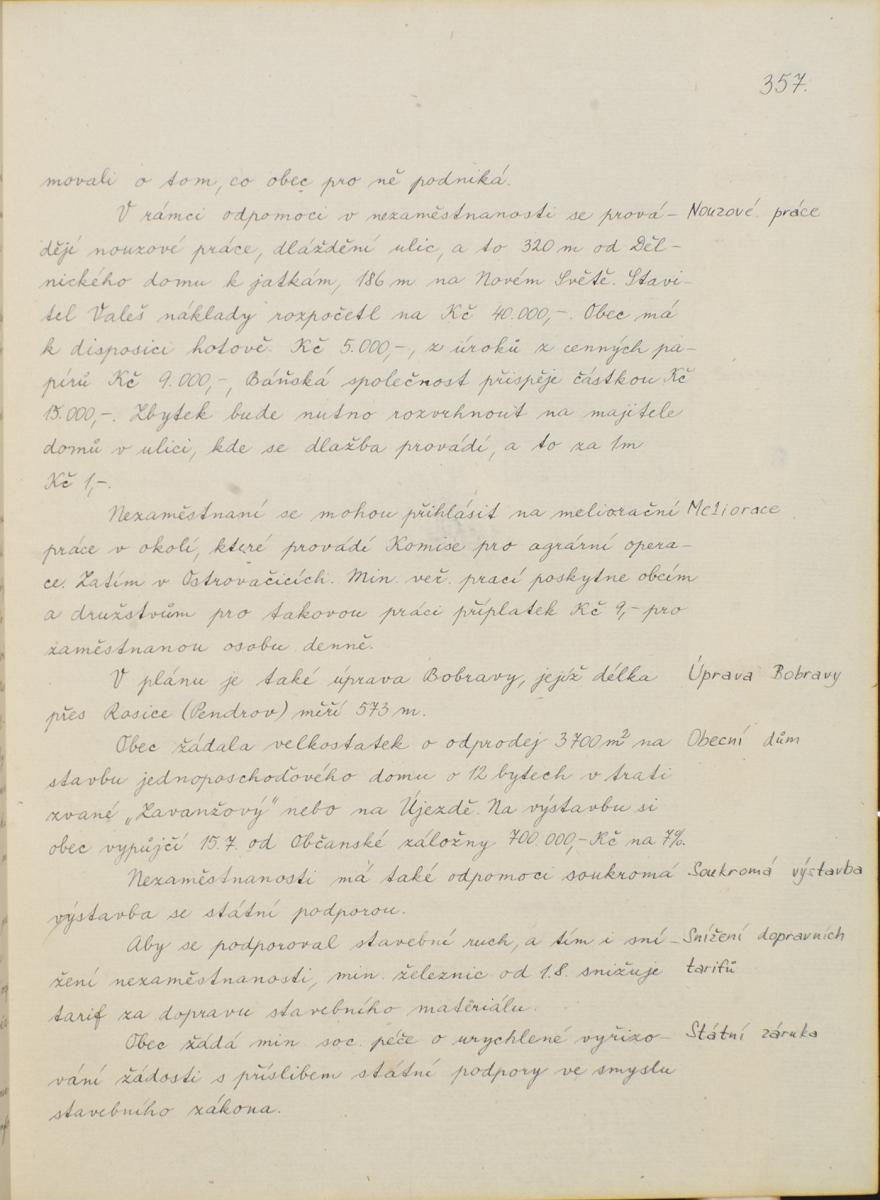 357.
movali o tom, co obec pro ně podniká.
V rámci odpomoci v nezaměstnanosti se prová- Nouzové práce
dějí nouzové práce, dláždění ulic, a to 320 m od Děl-
nického domu k jatkám, 186 m na Novém Světě. Stavi-
tel Valeš náklady rozpočetl na Kč 40.000,-. Obec má
k disposici hotově Kč 5.000,-, z úroků z cenných pa-
pírů Kč 9.000,-, Báňská společnost přispěje částkou Kč
15.000,-. Zbytek bude nutno rozvrhnout na majitele
domů v ulici, kde se dlažba provádí, a to za 1m
Kč 1,-.
Nezaměstnaní se mohou přihlásit na meliorační Meliorace
práce v okolí, které provádí Komise pro agrární opera-
ce. Zatím v Ostrovačicích. Min. veř. prací poskytne obcím
a družstvům pro takovou práci příplatek Kč 9,- pro
zaměstnanou osobu denně.
V plánu je také úprava Bobravy, jejíž délka Úprava Bobravy
přes Rosice (Pendrov) měří 573 m.
Obec žádala velkostatek o odprodej 3700 m² na Obecní dům
stavbu jednoposchoďového domu o 12 bytech v trati
zvané „Zavanžový" nebo na Újezdě. Na výstavbu si
obec vypůjčí 15.7. od Občanské záložny 700.000,- Kč na 7%.
Nezaměstnanosti má také odpomoci soukromá Soukromá výstavba
výstavba se státní podporou.
Aby se podporoval stavební ruch, a tím i sní- Snížení dopravních
žení nezaměstnanosti, min. železnic od 1.8. snižuje tarifů
tarif za dopravu stavebního matěriálu.
Obec žádá min. soc. péče o urychlené vyřizo- Státní záruka
vání žádosti s příslibem státní podpory ve smyslu
stavebního zákona.